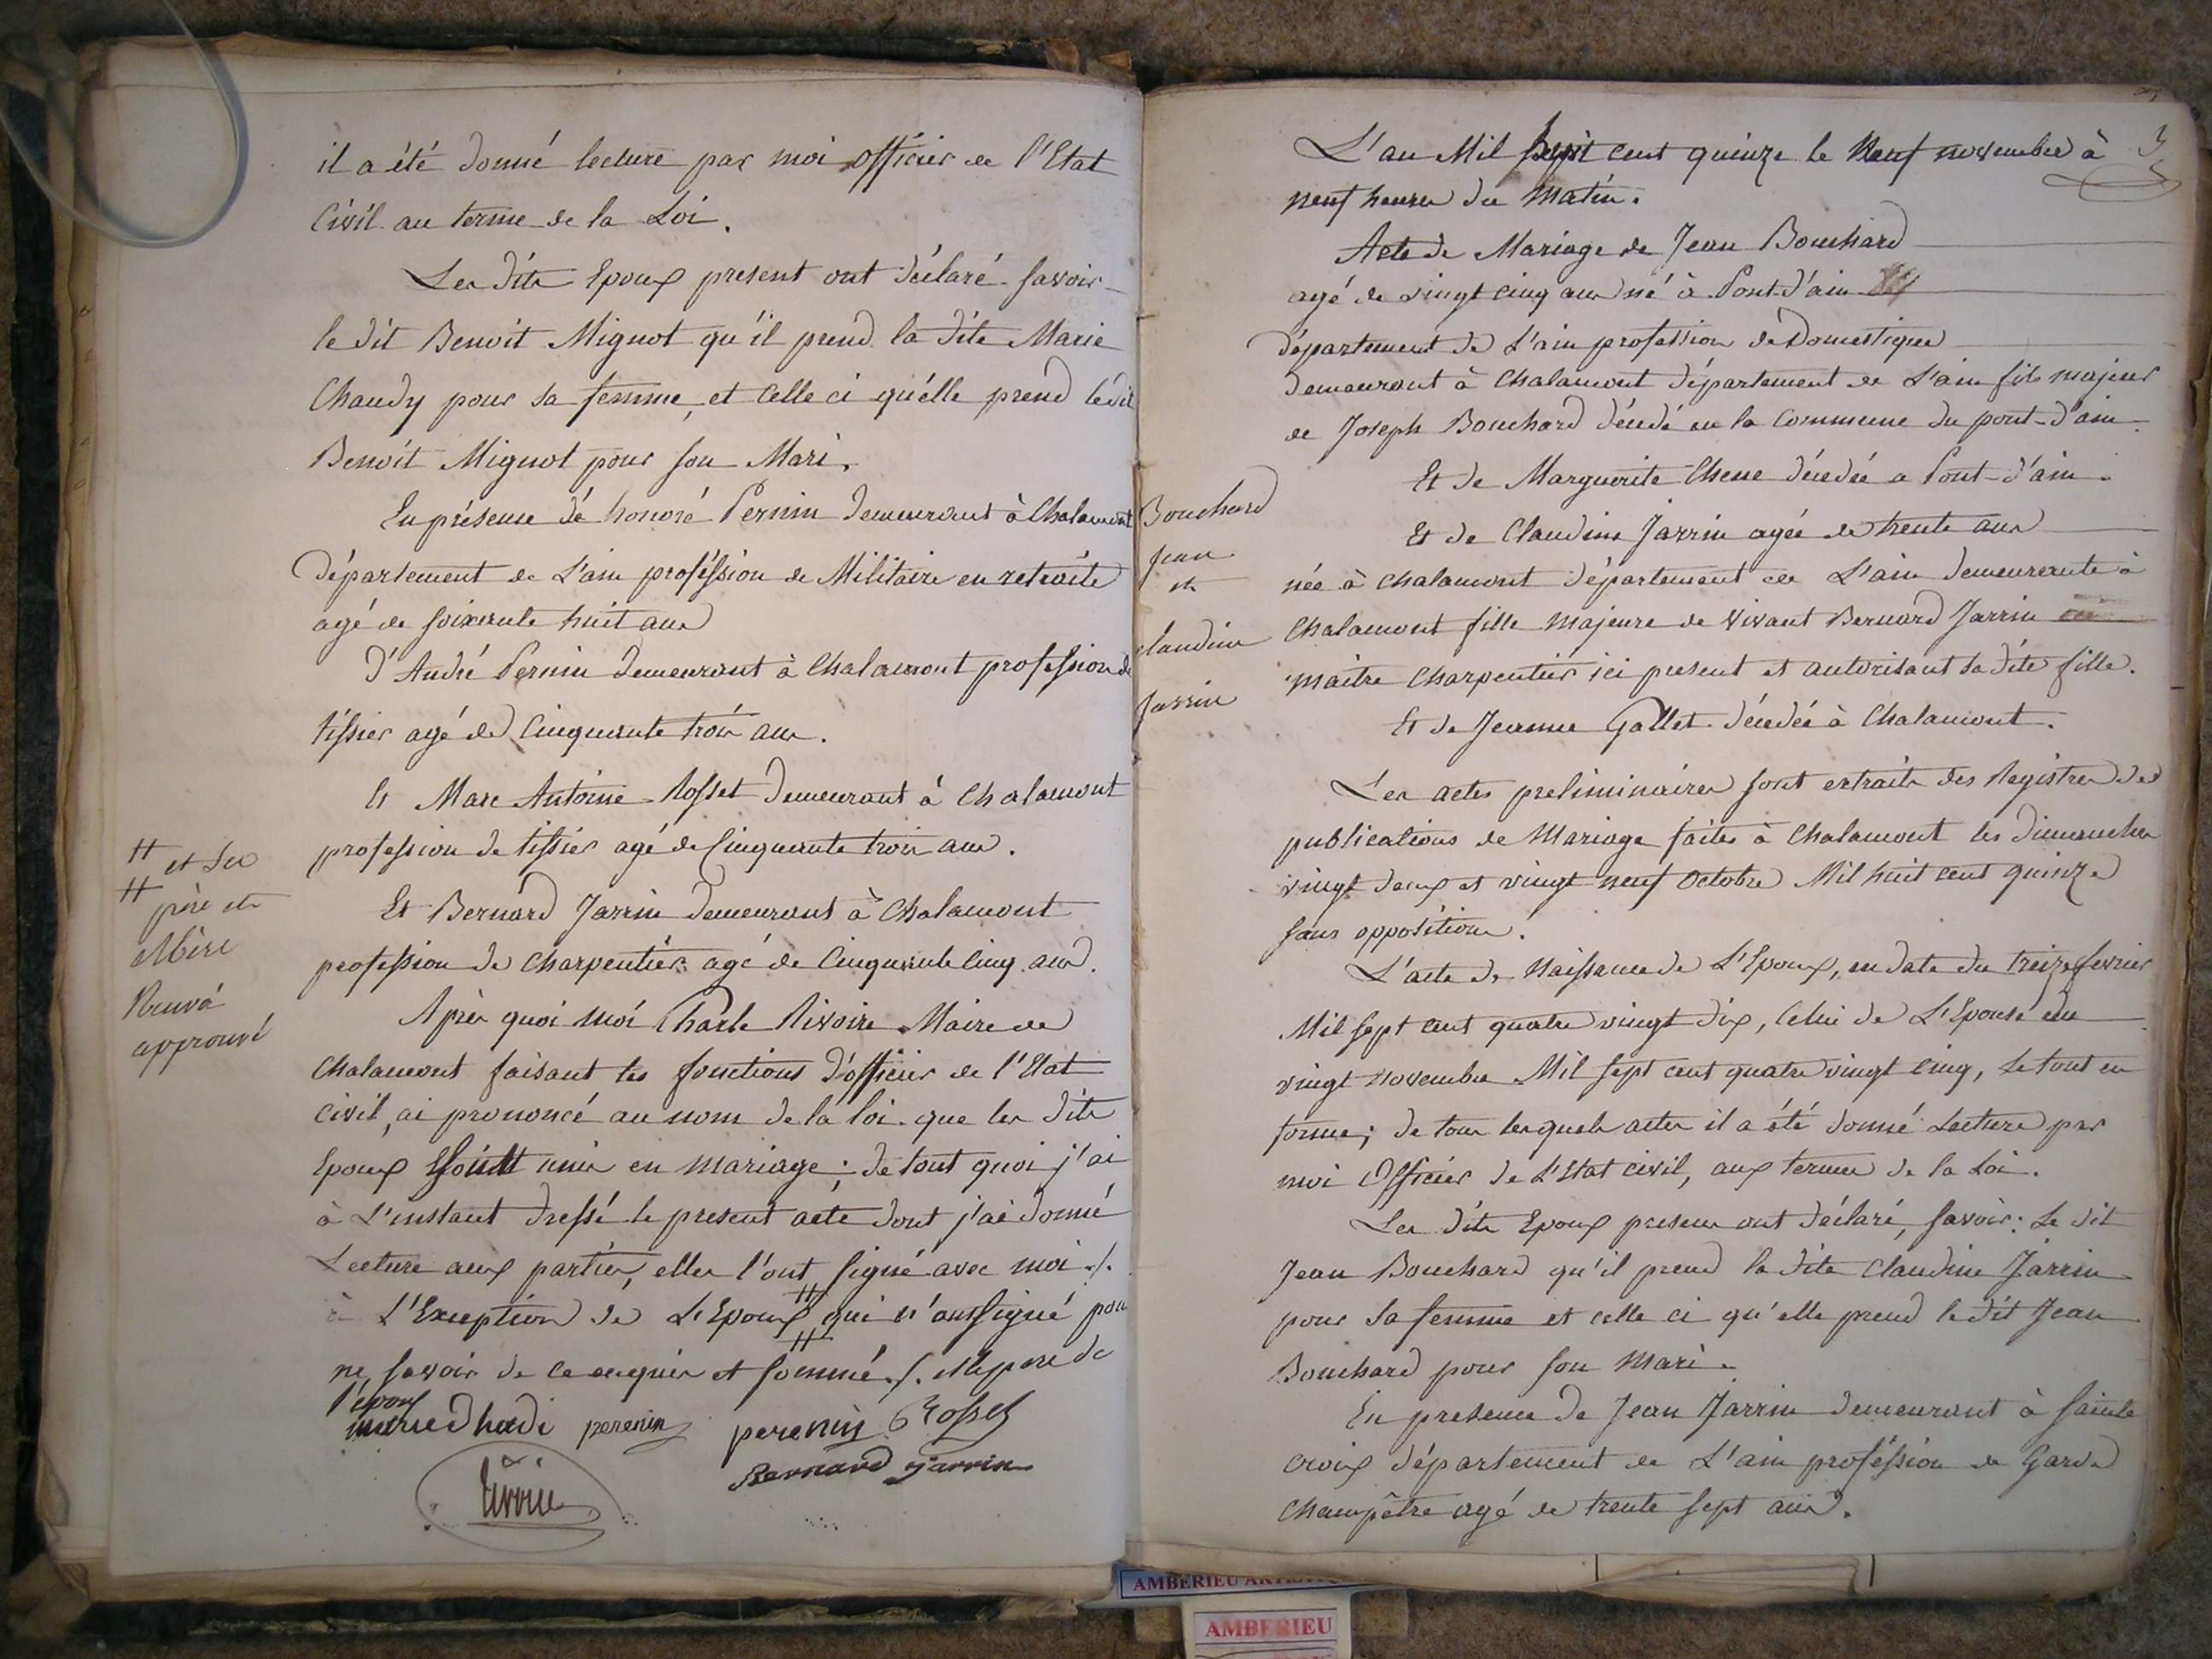 il a été donné lecture par moi officier de l'Etat
Civil au terme de la Loi.
Les dits Epoux present ont déclaré savoir
le dit Benoit Mignot qu'il prend la dite Marie
Chaudy pour sa femme, et celle ci qu'elle prend ledit
Benoit Mignot pour son Mari.
En présence de honoré Pernin demeurant à Chalamont
département de L'ain proféssion de Militaire en retraite
agé de soixante huit ans
D'André Pernin demeurant à Chalamont profession de
tissier agé de Cinquante trois ans.
Et Marc Antoine Rosset demeurant à Chalamont
profession de tissier agé de Cinquante trois ans.
Et Bernard Jarrin demeurant à Chalamont
profession de Charpentier agé de Cinquante cinq ans.
Après quoi moi Charle Rivoire Maire de
Chalamont faisant les fonctions d'officier de l'Etat
civil, ai prononcé au nom de la loi que les dits
Epoux sont unis en mariage; de tout quoi j'ai
à L'instant dressé le present acte dont j'ai donné
Lecture aux parties, elles l'ont signé avec moi ./.
à L'Exception de L'Epoux qui n'ont signé pour
ne savoir de ce enquis et sommé ./.
l'époux
perenin perenin Rosset
Bernard Jarrin
Rivoire
et les
père et
Mère
approuvé
Bouchard
Jean
et
claudine
Jarrin
3
L'an Mil sept cent quinze le Neuf novembre à
neuf heures du matin.
Acte de Mariage de Jean Bouchard
agé de vingt cinq ans né à Pont-d'ain
département de L'ain profession de Domestique
demeurant à Chalamont département de L'ain fils majeur
de Joseph Bouchard décédé en la Commune du pont-d'ain
Et de Marguerite Chene décédée a Pont-d'ain.
Et de Claudine Jarrin agée de trente ans
née à Chalamont département de L'ain demeurante à
Chalamont fille majeure de vivant Bernard Jarrin
maitre Charpentier ici present et autorisant sa dite fille.
Et de Jeanne Gallet décédée à Chalamont.
Les actes preliminaires sont extraits des Registres des
publications de Mariage faites à Chalamont les dimanches
vingt deux et vingt neuf Octobre Mil huit cent quinze
sans opposition.
L'acte de Naissance de L'Epoux, en date du treize fevrier
Mil sept cent quatre vingt dix, Celui de L'Epouse du
vingt novembre Mil sept cent quatre vingt cinq, le tout en
forme; de tous lesquels actes il a été donné Lecture par
moi Officier de L'Etat civil, aux termes de la Loi.
Les dits Epoux presens ont déclaré, savoir: Le dit
Jean Bouchard qu'il prend la dite Claudine Jarrin
pour sa femme et celle ci qu'elle prend le dit Jean
Bouchard pour son Mari.
En presence de Jean Jarrin demeurant à Sainte
croix département de L'ain proféssion de Garde
Champêtre agé de trente sept ans.
AMBERIEU
AMBERIEU